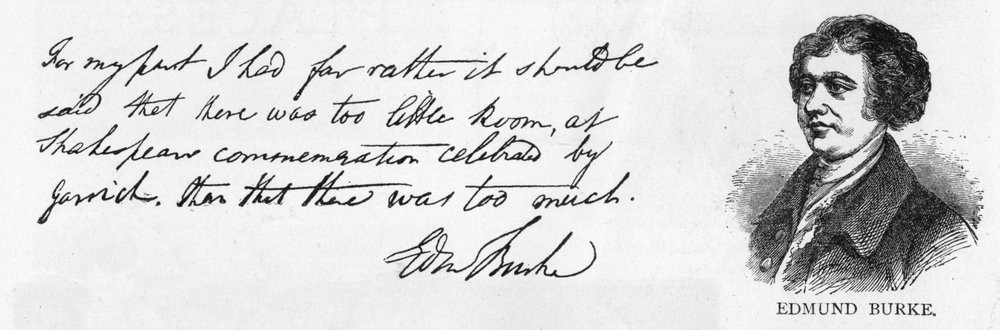 For my part I had far rather it should be
said that there was too little Room, at
Shakespears commemoration celebrated by
Garrick. than that there was too much.
Edm Burke
EDMUND BURKE.